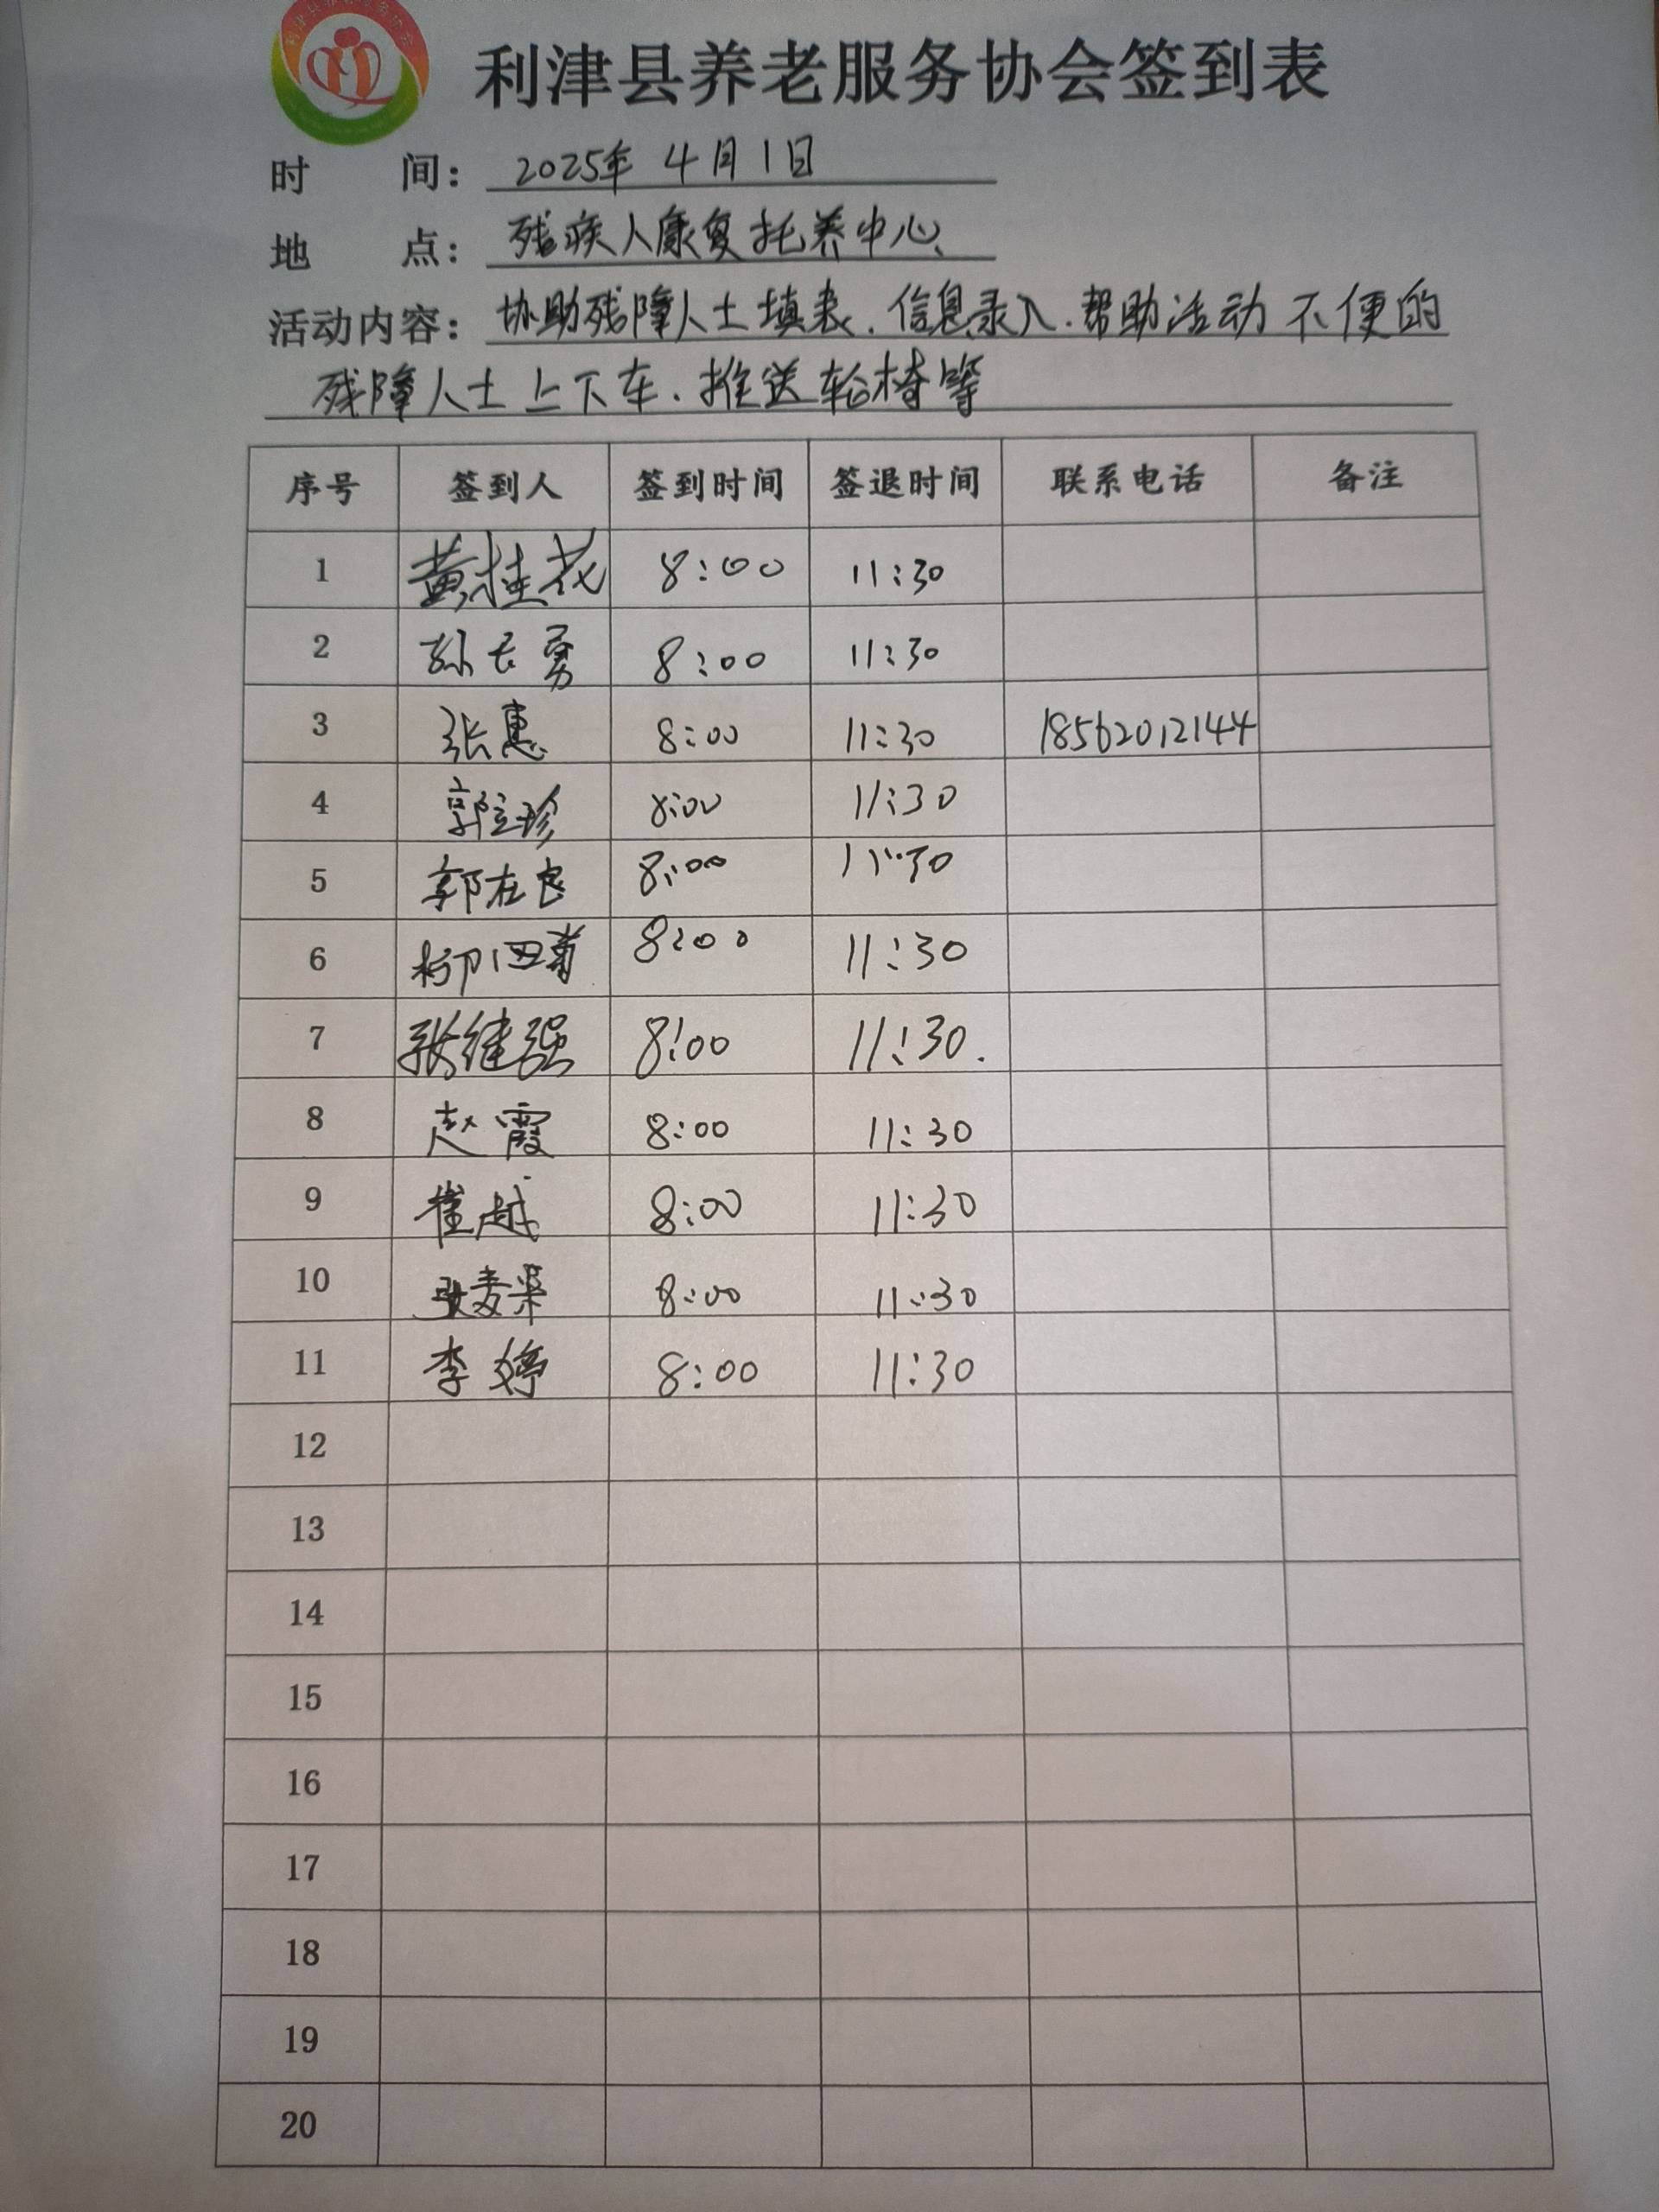 利津县养老服务协会签到表
时 间: 2025年 4月1日
地 点: 残疾人康复托养中心
活动内容: 协助残障人士填表、信息录入、帮助活动不便的
残障人士上下车、推送轮椅等
序号 签到人 签到时间 签退时间 联系电话 备注
1 黄桂花 8:00 11:30
2 孙长勇 8:00 11:30
3 张惠 8:00 11:30 18562012144
4 郭立珍 8:00 11:30
5 郭在良 8:00 11:30
6 8:00 11:30
7 张继强 8:00 11:30.
8 赵霞 8:00 11:30
9 崔越 8:00 11:30
10 8:00 11:30
11 李婷 8:00 11:30
12
13
14
15
16
17
18
19
20